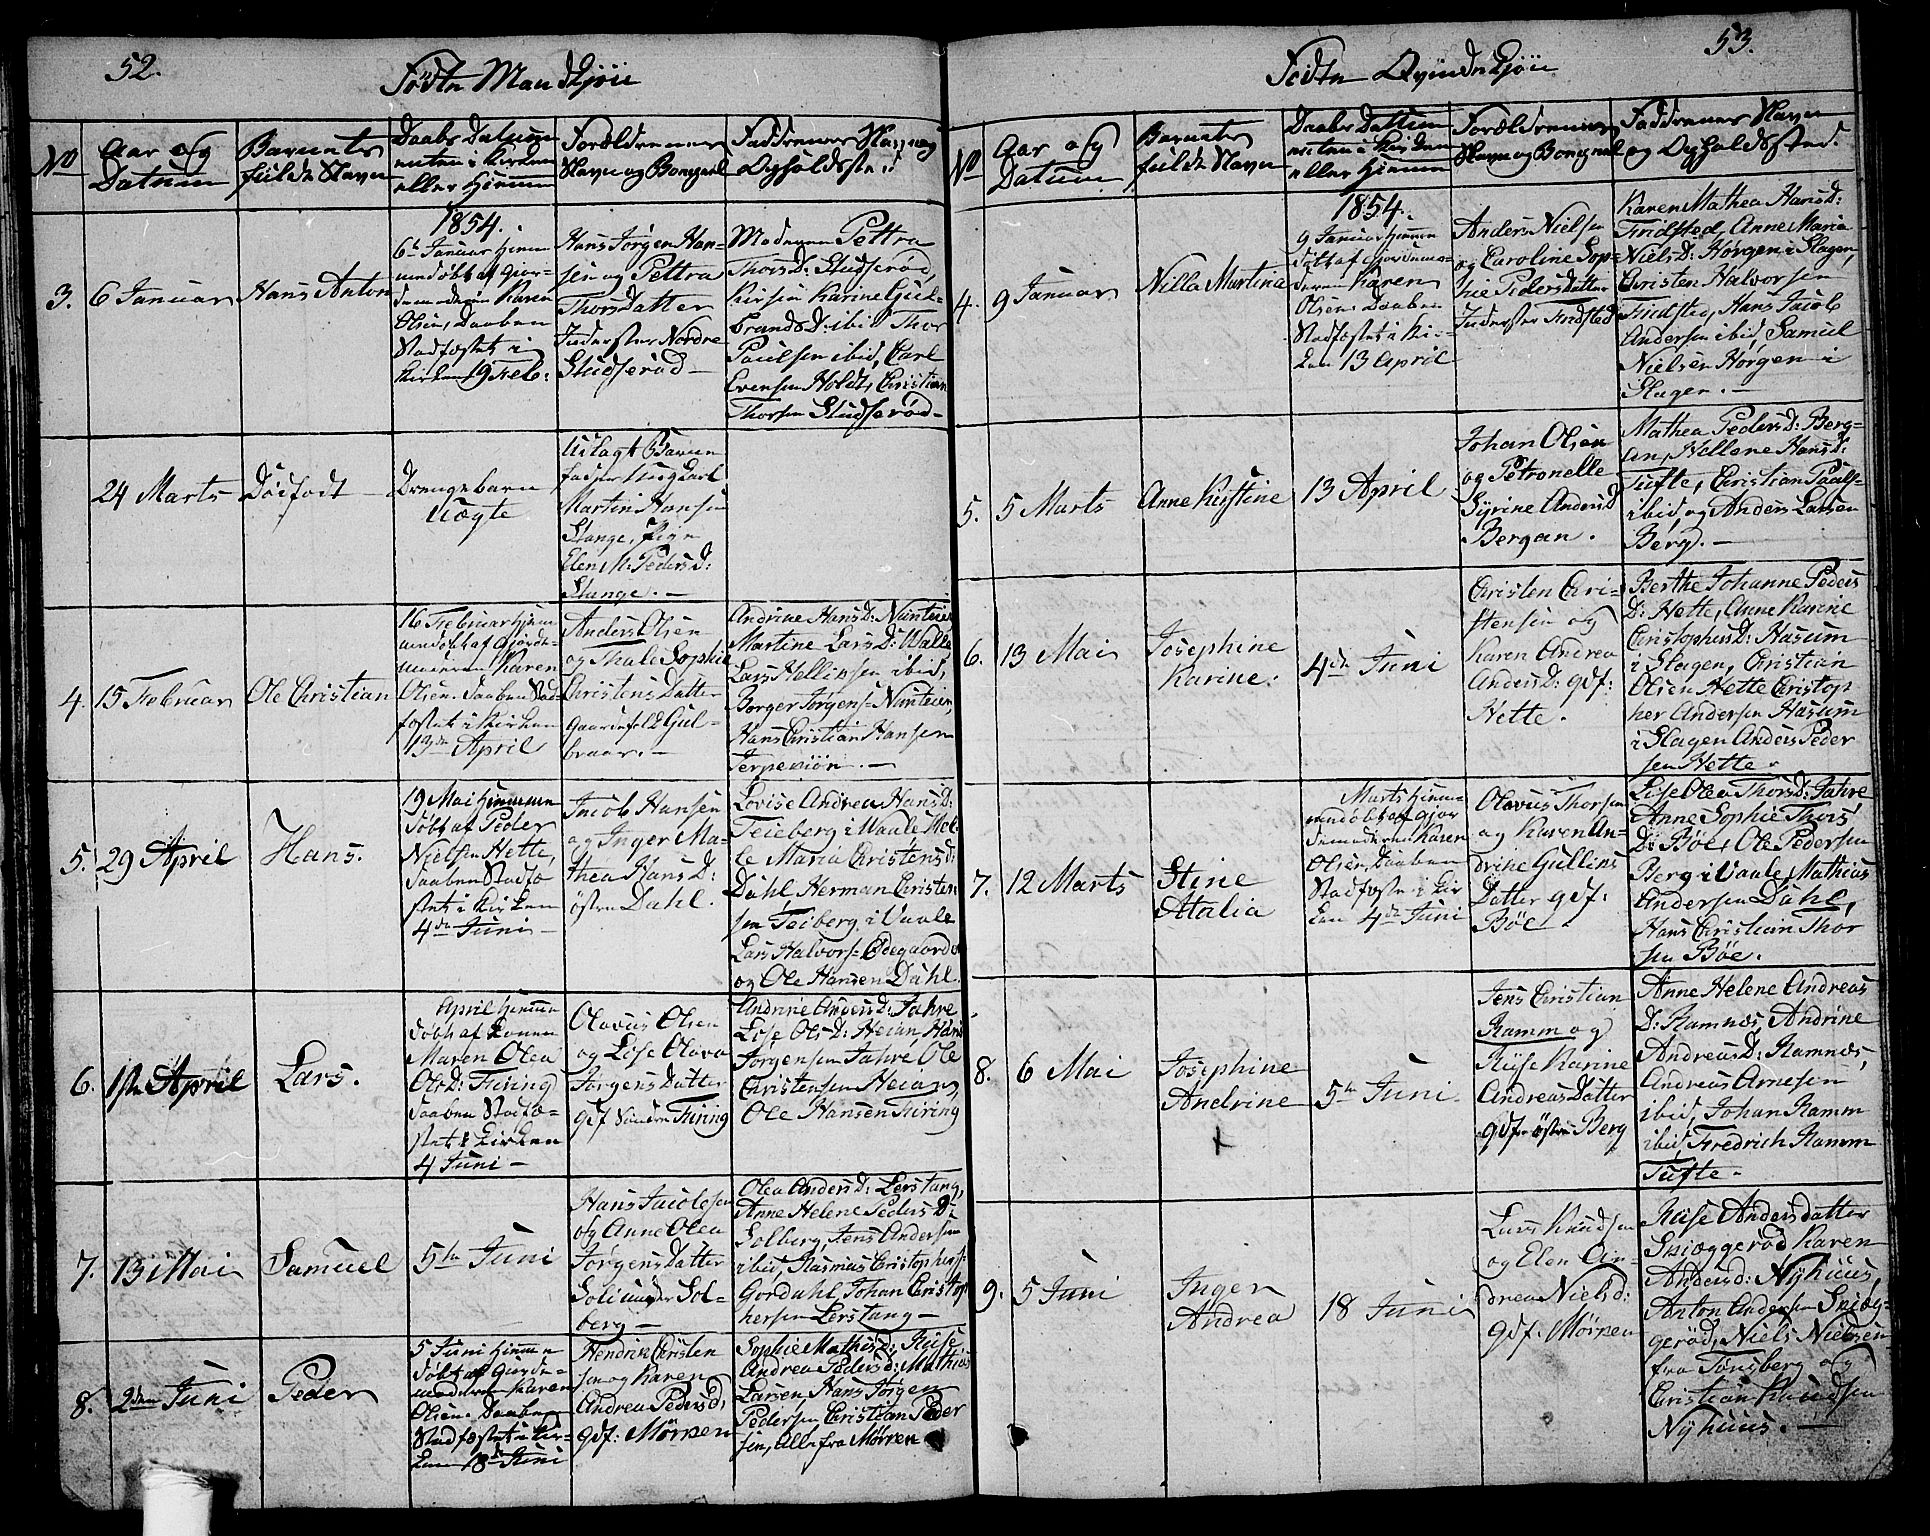 52.
Födte Mandkjøn
No
Aar og
Datum
Barnets
fulde Navn
Daabs Datum
enten i Kirken
eller Hiemme
Forældrenes
Navn og Bopæl
Faddernes Navn og
Opholdssted
3.
6 Januar
Hans Anton
1854.
6te Januar hiem-
medøbt af Gjor-
demoderen Karen
Olsen, Daaben
Stadfæstet i
Kirken 19 Feb:
Hans Jørgen Han-
sen og Pettra
Thorsdatter
Inderster Nordre
Studserød
Madame Pettra
Thorsd: Studserød,
Karine Gul-
brandsd: ibid, Thor
Paulsen ibid, Carl
Evensen Holdt, Christian
Thorsen Studserød
24 Marts
Dödfødt
Drengebarn
Uægte
Udlagt Barne
fader Ung Carl
Martin Hansen
Stange, Pige
Elen M. Pedersd:
Stange.
4.
15 Februar
Ole Christian
16 Februar hjem
medøbt af Gjorde-
moderen Karen
Olsen. Daaben Stad-
fæstet i Kirken
13de April
Anders Olsen
og Thale Sophie
Christensdatter
Gaardefolk Gul-
braar.
Andrine Hansd:
Martine Larsd: Walle
Lars Hollinsen ibid,
Borger Jørgens:
Hans Christian Hansen
5.
29 April
Hans.
19 Mai hiemme
døbt af Peder
Nielsen Hette,
Daaben Stadfæ-
stet i Kirken
4de Juni
Jacob Hansen
og Inger Ma-
thea Hansd:
östre Dahl.
Lovise Andrea Hansd:
Teieberg i Vaale
Maria Christensd:
Dahl, Herman Christen
sen Teiberg i Vaale
Lars Halvors: Ødegaarden
og Ole Hansen Dahl.
6.
1ste April
Lars.
April hiemme
døbt af Konen
Maren Olea
Olsd: Firing
Daaben Stadfæ-
stet i Kirken
4 Juni
Olavus Olsen
og Lise Olava
Jørgensdatter
gdf Søndre Firing
Andrine Andersd: Jahre
Lise Olsd: Heian, Hans
Jørgensen Jahre, Ole
Christensen Heian,
Ole Hansen Firing
7.
13 Mai
Samuel
5te Juni
Hans Jacobsen
og Anne Olea
Jørgensdatter
Soli under Sol-
berg
Olea Andersd: Lerstang,
Anne Helene Pedersd:
Solberg, Jens Andersen
ibid, Rasmus Christophers:
Gordahl, Johan Christop
hersen Lerstang
8.
2den Juni
Peder
5 Juni hiemme
døbt af Gjorde-
moderen Karen
Olsen. Daaben
Stadfæstet i Kir-
ken 18de Juni
Hendrik Christen
sen og Karen
Andrea Pedersd:
gdf: Mørken
Sophie Mathisd:
Andrea Pedersd: Mathias
Larsen, Hans Jørgen
Pedersen Christian Peder
sen, Alle fra Mørken
53.
Födte Qvindekjøn
No
Aar og
Datum
Barnets
fulde Navn
Daabs Datum
enten i Kirken
eller Hiemme
Forældrenes
Navn og Bopæl
Faddernes Navn
og Opholdssted.
4.
9 Januar
Nilla Martina
1854.
9 Januar hjemme
døbt af Gjordemo-
deren Karen
Olsen. Daaben
Stadfæstet i Kir-
ken 13 April
Anders Nielsen
og Caroline Sop-
hie Pedersdatter
Inderster Findsted
Karen Mathea Hansd:
Findsted, Anne Maria
Nielsd: Hørgen i Slagen,
Christen Halvorsen
Findsted, Hans Jacob
Andersen ibid, Samuel
Nielsen Hørgen i
Slagen.
5.
5 Marts
Anne Kirstine
13 April
Johan Olsen
og Petronelle
Syrine Andersd
Bergan.
Mathea Pedersd: Berg-
an, Hellene Hansd:
Tufte, Christian Pauls-
ibid og Anders Larsen
Berg.
6.
13 Mai
Josephine
Karine.
4de Juni
Christen Chri-
stensen og
Karen Andrea
Andersd: gdf:
Hette.
Berthe Johanne Peders
D: Hette, Anne Karine
Christophersd: Hasum
i Slagen, Christian
Olsen Hette Christop
her Andersen Hasum
i Slagen Anders Peder
sen Hette.
7.
12 Marts
Stine
Atalia
Marts hiem-
medøbt af Gjor
demoderen Karen
Olsen, Daaben
Stadfæstet i Kir
ken 4de Juni
Olavus Thorsen
og Karen An-
drine Gullins
Datter gdf:
Böe
Lise Olea Thorsd: Jahre
Anne Sophie Thors
D: Böe, Ole Pedersen
Berg i Vaale, Mathias
Andersen Dahl,
Hans Christian Thor
sen Böe.
8.
6 Mai
Josephine
Andrine
+
5te Juni
Jens Christian
Ramm og
Riise Karine
Andreasdatter
gdf: östre Berg
Anne Helene Andreas
D: Ramnæs, Andrine
Andreasd: Ramnæs,
Andreas Arnesen
ibid, Johan Ramm
ibid, Fredrich Ramm
Tufte
9.
5 Juni
Inger
Andrea
18 Juni
Lars Knudsen
og Elen An-
drea Nielsd:
gdf: Mörken
Riise Andersdatter
Skiæggerød Karen
Andersd: Nyhuus,
Anton Andersen Skiæg-
gerød, Niels Nielsen
fra Tønsberg og
Christian Knudsen
Nyhuus.